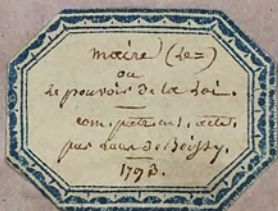 Maire (Le=)
ou
Le pouvoir de la Loi.
com. patr. en 1. acte.
par Laus de Boissy.
1793.